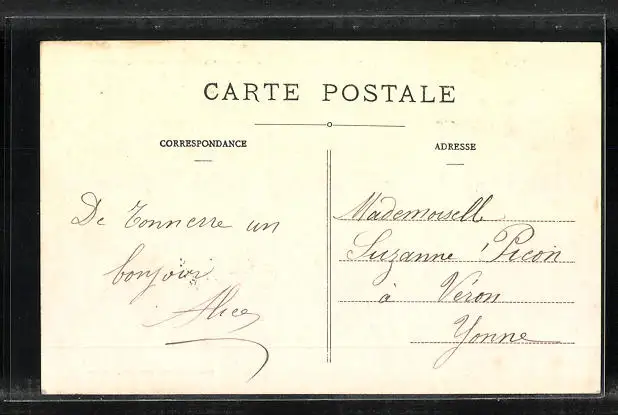 CARTE POSTALE
CORRESPONDANCE
ADRESSE
De Tonnerre un
bonjour
Alice
Mademoiselle
Suzanne Picon
à Véron
Yonne